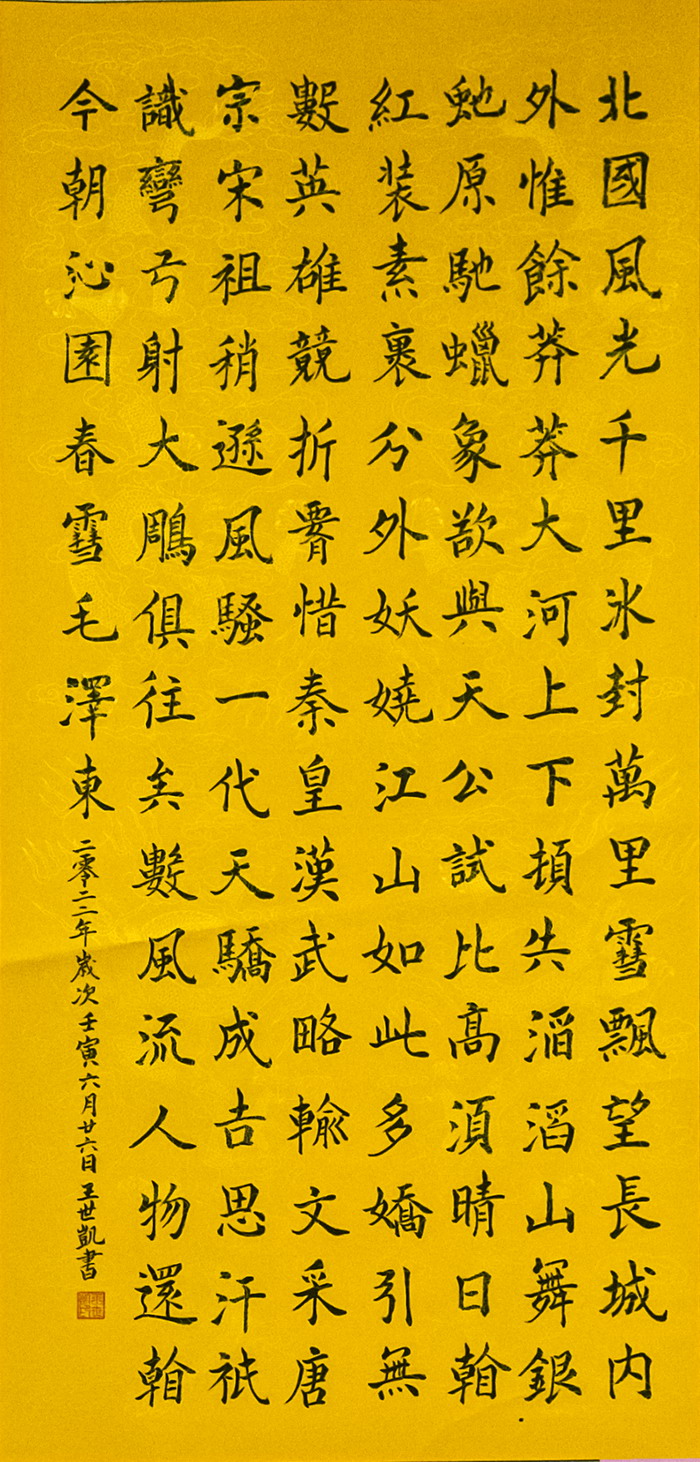 北國風光千里氷封萬里雪飄望長城内
外惟餘莽莽大河上下頓失滔滔山舞銀
虵原馳蠟象欲與天公試比高須晴日看
紅装素裹分外妖嬈江山如此多嬌引無
數英雄競折腰惜秦皇漢武略輸文采唐
宗宋祖稍遜風騷一代天驕成吉思汗祇
識彎弓射大鵰俱往矣數風流人物還看
今朝沁園春雪毛澤東
二零二二年歲次壬寅六月廿六日王世凱書